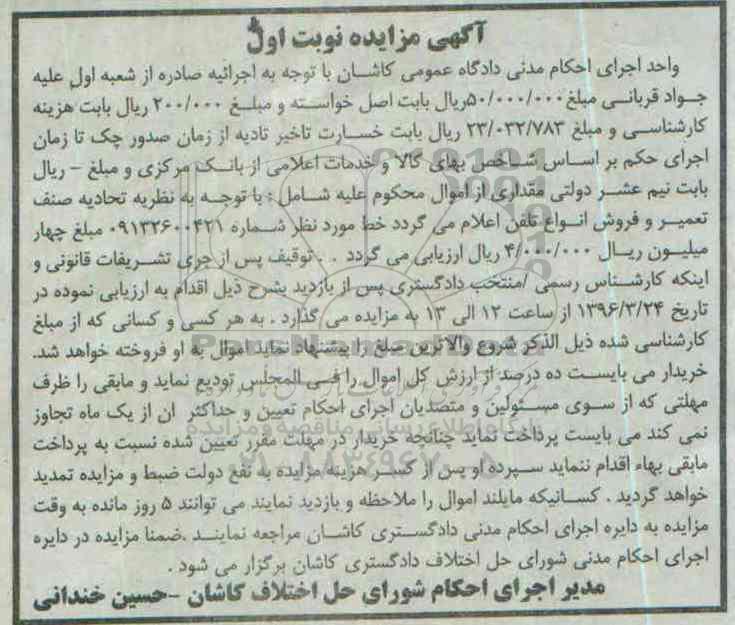 آگهی مزایده نوبت اول
واحد اجرای احکام مدنی دادگاه عمومی کاشان با توجه به اجرائیه صادره از شعبه اول علیه
جواد قربانی مبلغ ۵۰/۰۰۰/۰۰۰ریال بابت اصل خواسته و مبلغ ۲۰۰/۰۰۰ ریال بابت هزینه
کارشناسی و مبلغ ۲۳/۰۳۲/۷۸۳ ریال بابت خسارت تاخیر تادیه از زمان صدور چک تا زمان
اجرای حکم بر اساس شاخص بهای کالا و خدمات اعلامی از بانک مرکزی و مبلغ - ریال
بابت نیم عشر دولتی مقداری از اموال محکوم علیه شامل : با توجه به نظریه تحادیه صنف
تعمیر و فروش انواع تلفن اعلام می گردد خط مورد نظر شماره ۰۹۱۳۲۶۰۰۴۲۱ مبلغ چهار
میلیون ریال ۴/۰۰۰/۰۰۰ ریال ارزیابی می گردد . . توقیف پس از جری تشریفات قانونی و
اینکه کارشناس رسمی /منتخب دادگستری پس از بازدید بشرح ذیل اقدام به ارزیابی نموده در
تاریخ ۱۳۹۶/۳/۲۴ از ساعت ۱۲ الی ۱۳ به مزایده می گذارد . به هر کسی و کسانی که از مبلغ
کارشناسی شده ذیل الذکر شروع والاترین مبلغ را پیشنهاد نماید اموال به او فروخته خواهد شد.
خریدار می بایست ده درصد از ارزش کل اموال را فی المجلس تودیع نماید و مابقی را ظرف
مهلتی که از سوی مسئولین و متصدیان اجرای احکام تعیین و حداکثر ان از یک ماه تجاوز
نمی کند می بایست پرداخت نماید چنانچه خریدار در مهلت مقرر تعیین شده نسبت به پرداخت
مابقی بهاء اقدام ننماید سپرده او پس از کسر هزینه مزایده به نفع دولت ضبط و مزایده تمدید
خواهد گردید . کسانیکه مایلند اموال را ملاحظه و بازدید نمایند می توانند ۵ روز مانده به وقت
مزایده به دایره اجرای احکام مدنی دادگستری کاشان مراجعه نمایند .ضمنا مزایده در دایره
اجرای احکام مدنی شورای حل اختلاف دادگستری کاشان برگزار می شود .
مدیر اجرای احکام شورای حل اختلاف کاشان -حسین خندانی